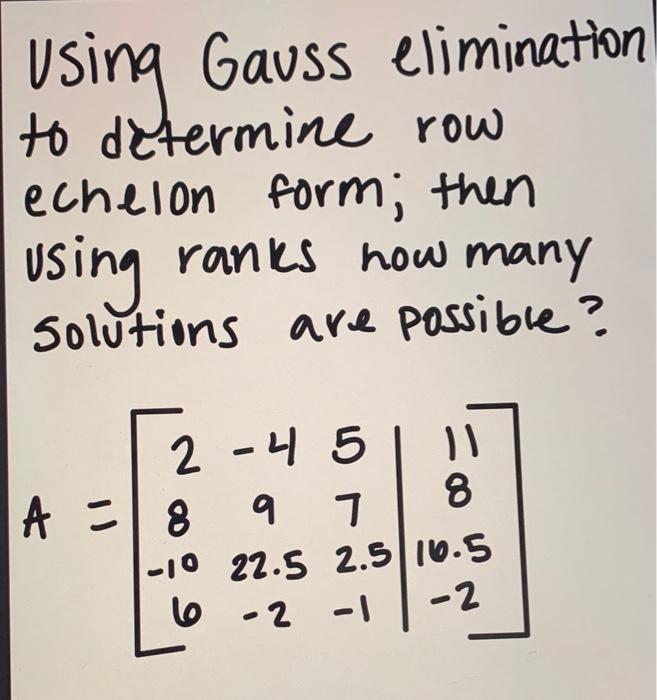 Using Gauss elimination
to determine row
echelon form; then
using ranks how many
solutions are possible?
2 -4 5 | 11
8 9 7 | 8
A = -10 22.5 2.5 | 16.5
6 -2 -1 | -2